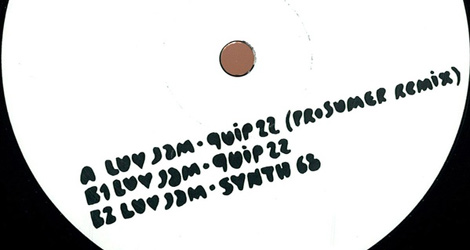 A LUV JAM · QUIP 22 (PROSUMER REMIX)
B1 LUV JAM · QUIP 22
B2 LUV JAM · SYNTH 68